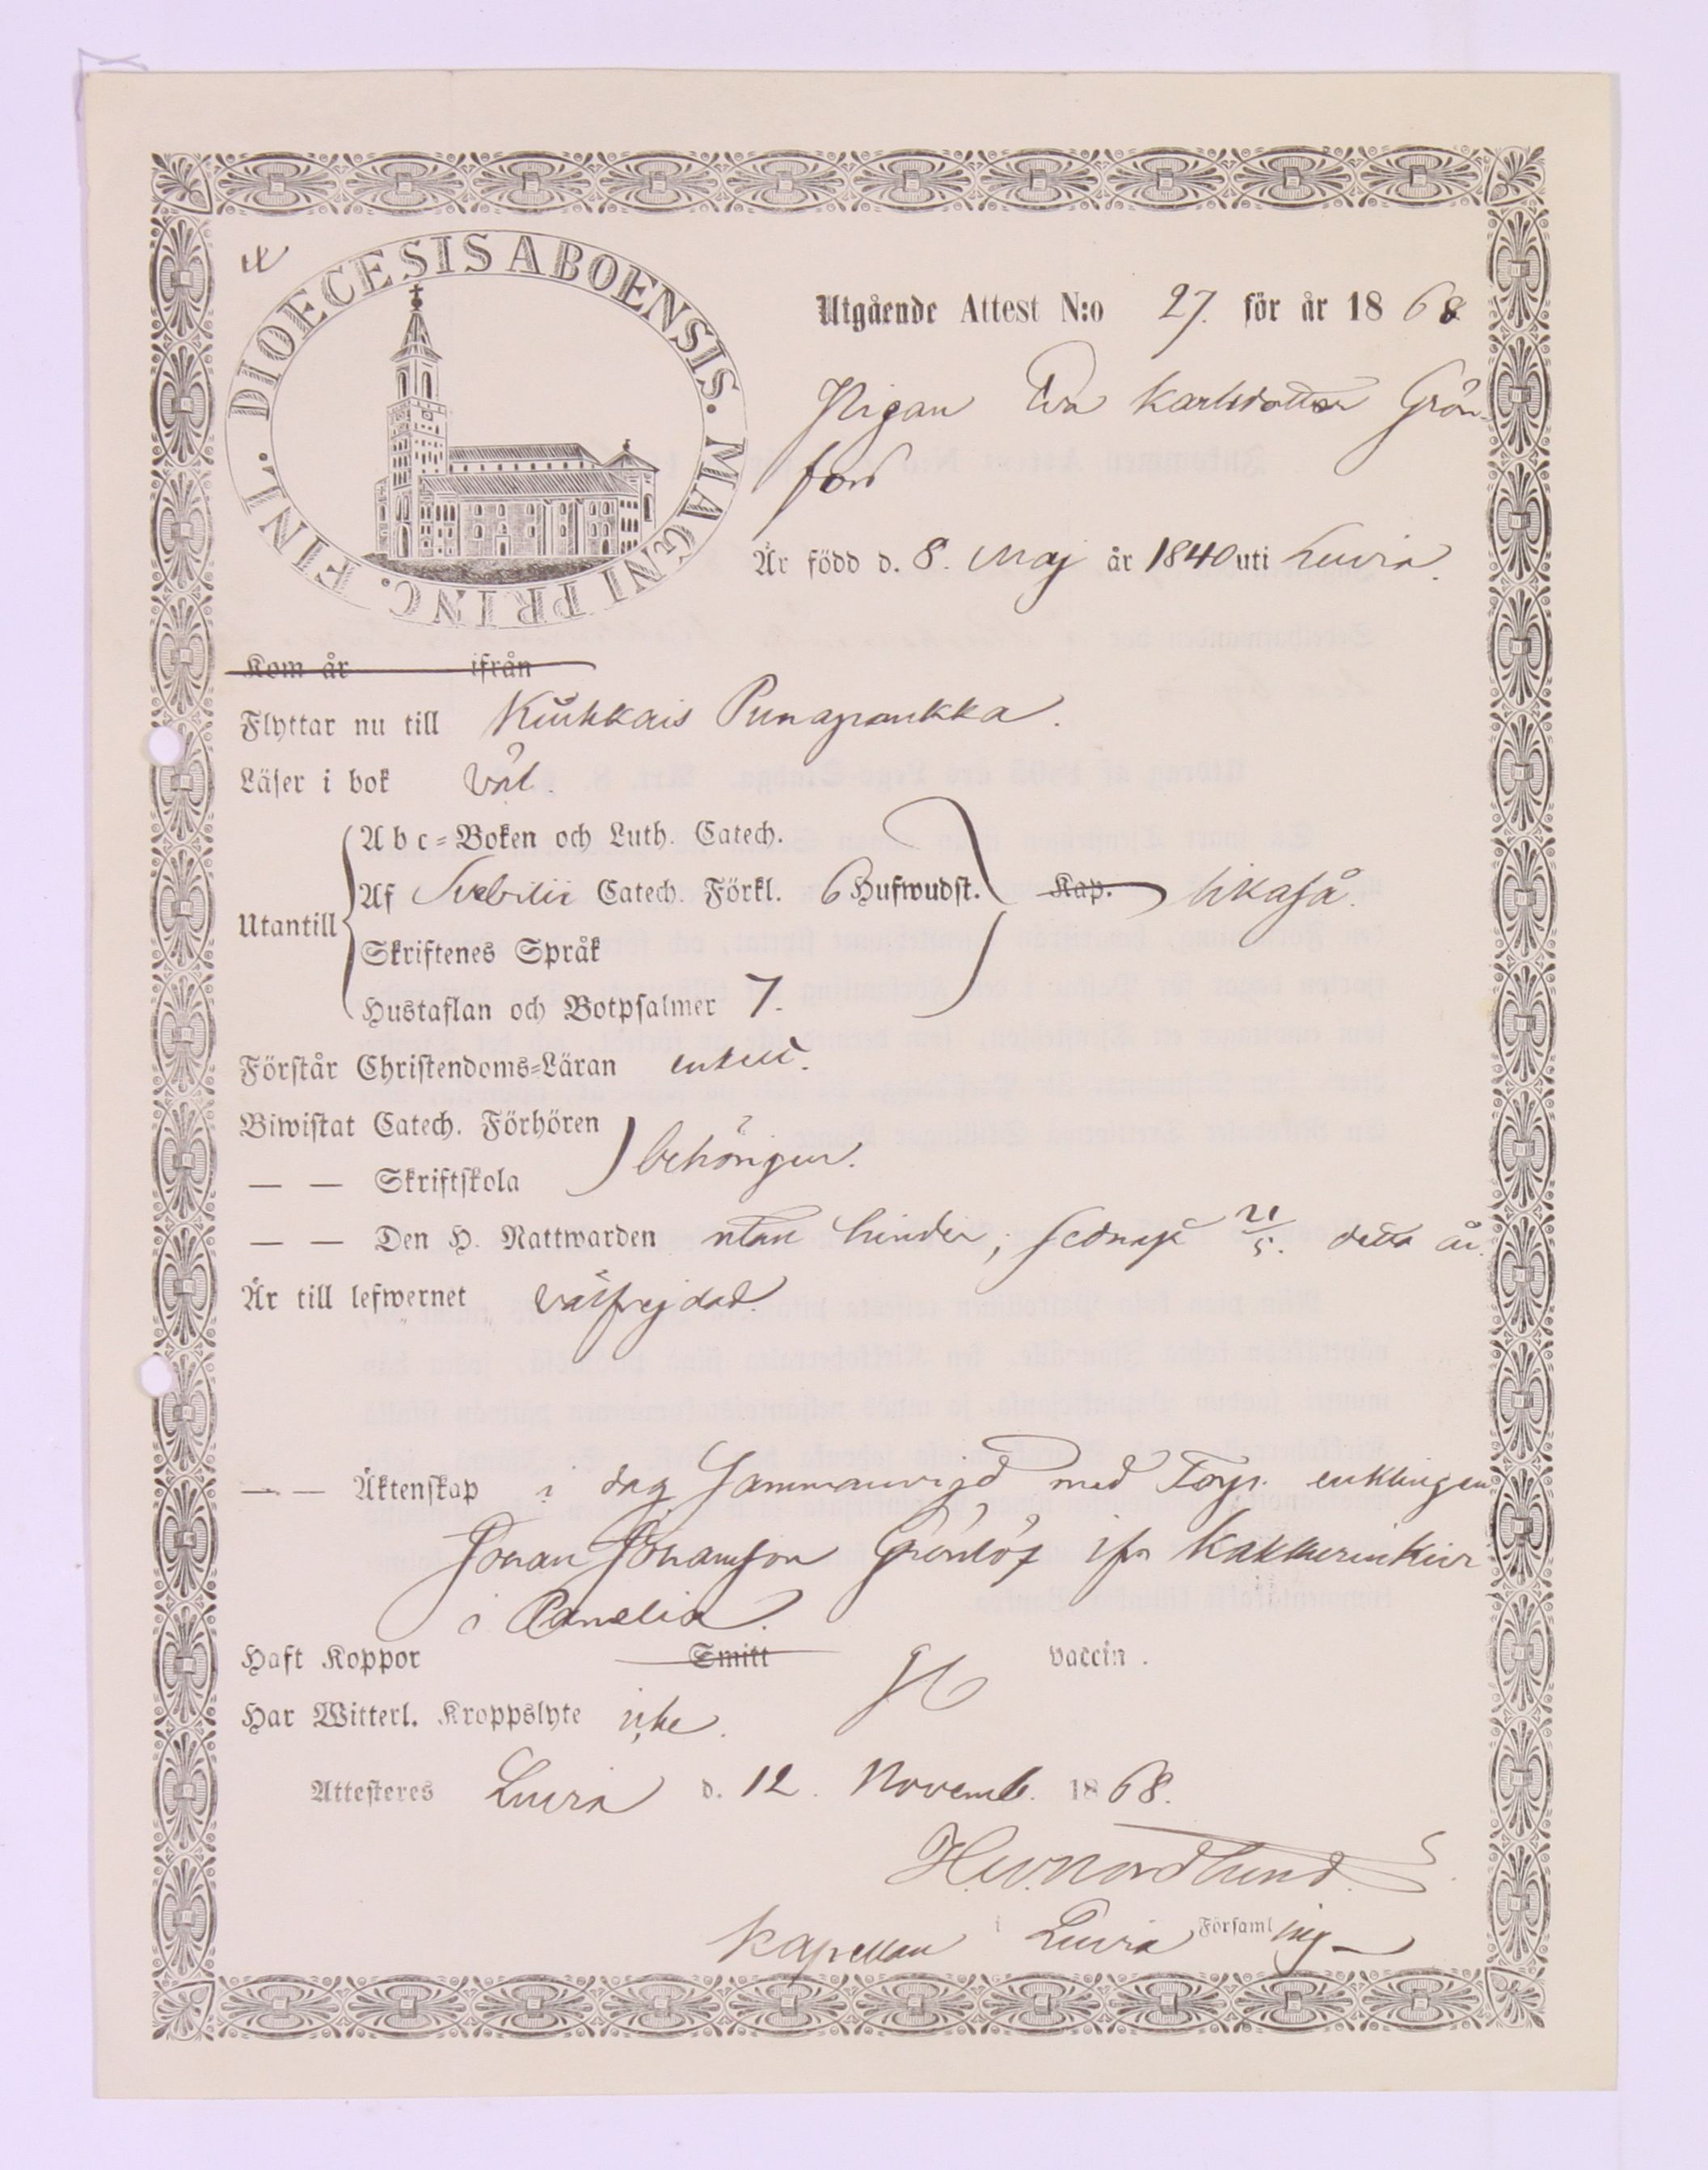 DIOECESIS ABOENSIS. MAGNI PRINC. FINL.
Utgående Attest N:o 27. för år 1868
Pigan Eva Karlsdotter Grön-
fors
Är född d. 8. Maj år 1840 uti Luvia.
Kom år ifrån
Flyttar nu till Kiukkais Punapaukka.
Läser i bok väl.
Abc-Boken och Luth. Catech.
Utantill Af Svebilii Catech. Förkl. 6 Hufwudst. Kap. likaså.
Skriftenes Språk
Hustaflan och Botpsalmer 7.
Förstår Christendoms-Läran enkelt.
Biwistat Catech. Förhören
behörigen.
— — Skriftskola
— — Den H. Nattwarden utan hinder, sednast 21/5. detta år.
Är till lefwernet välfrejdad.
— — Äktenskap i dag sammanvigd med Torp. enklingen
Johan Johansson Grönlöf ifr.
i Panelia.
Haft Koppor Smitt vaccin.
Har Witterl. Kroppslyte icke.
Attesteres Luvia d. 12. Novemb. 1868.
Nordlund.
Kapellan i Luvia Församling